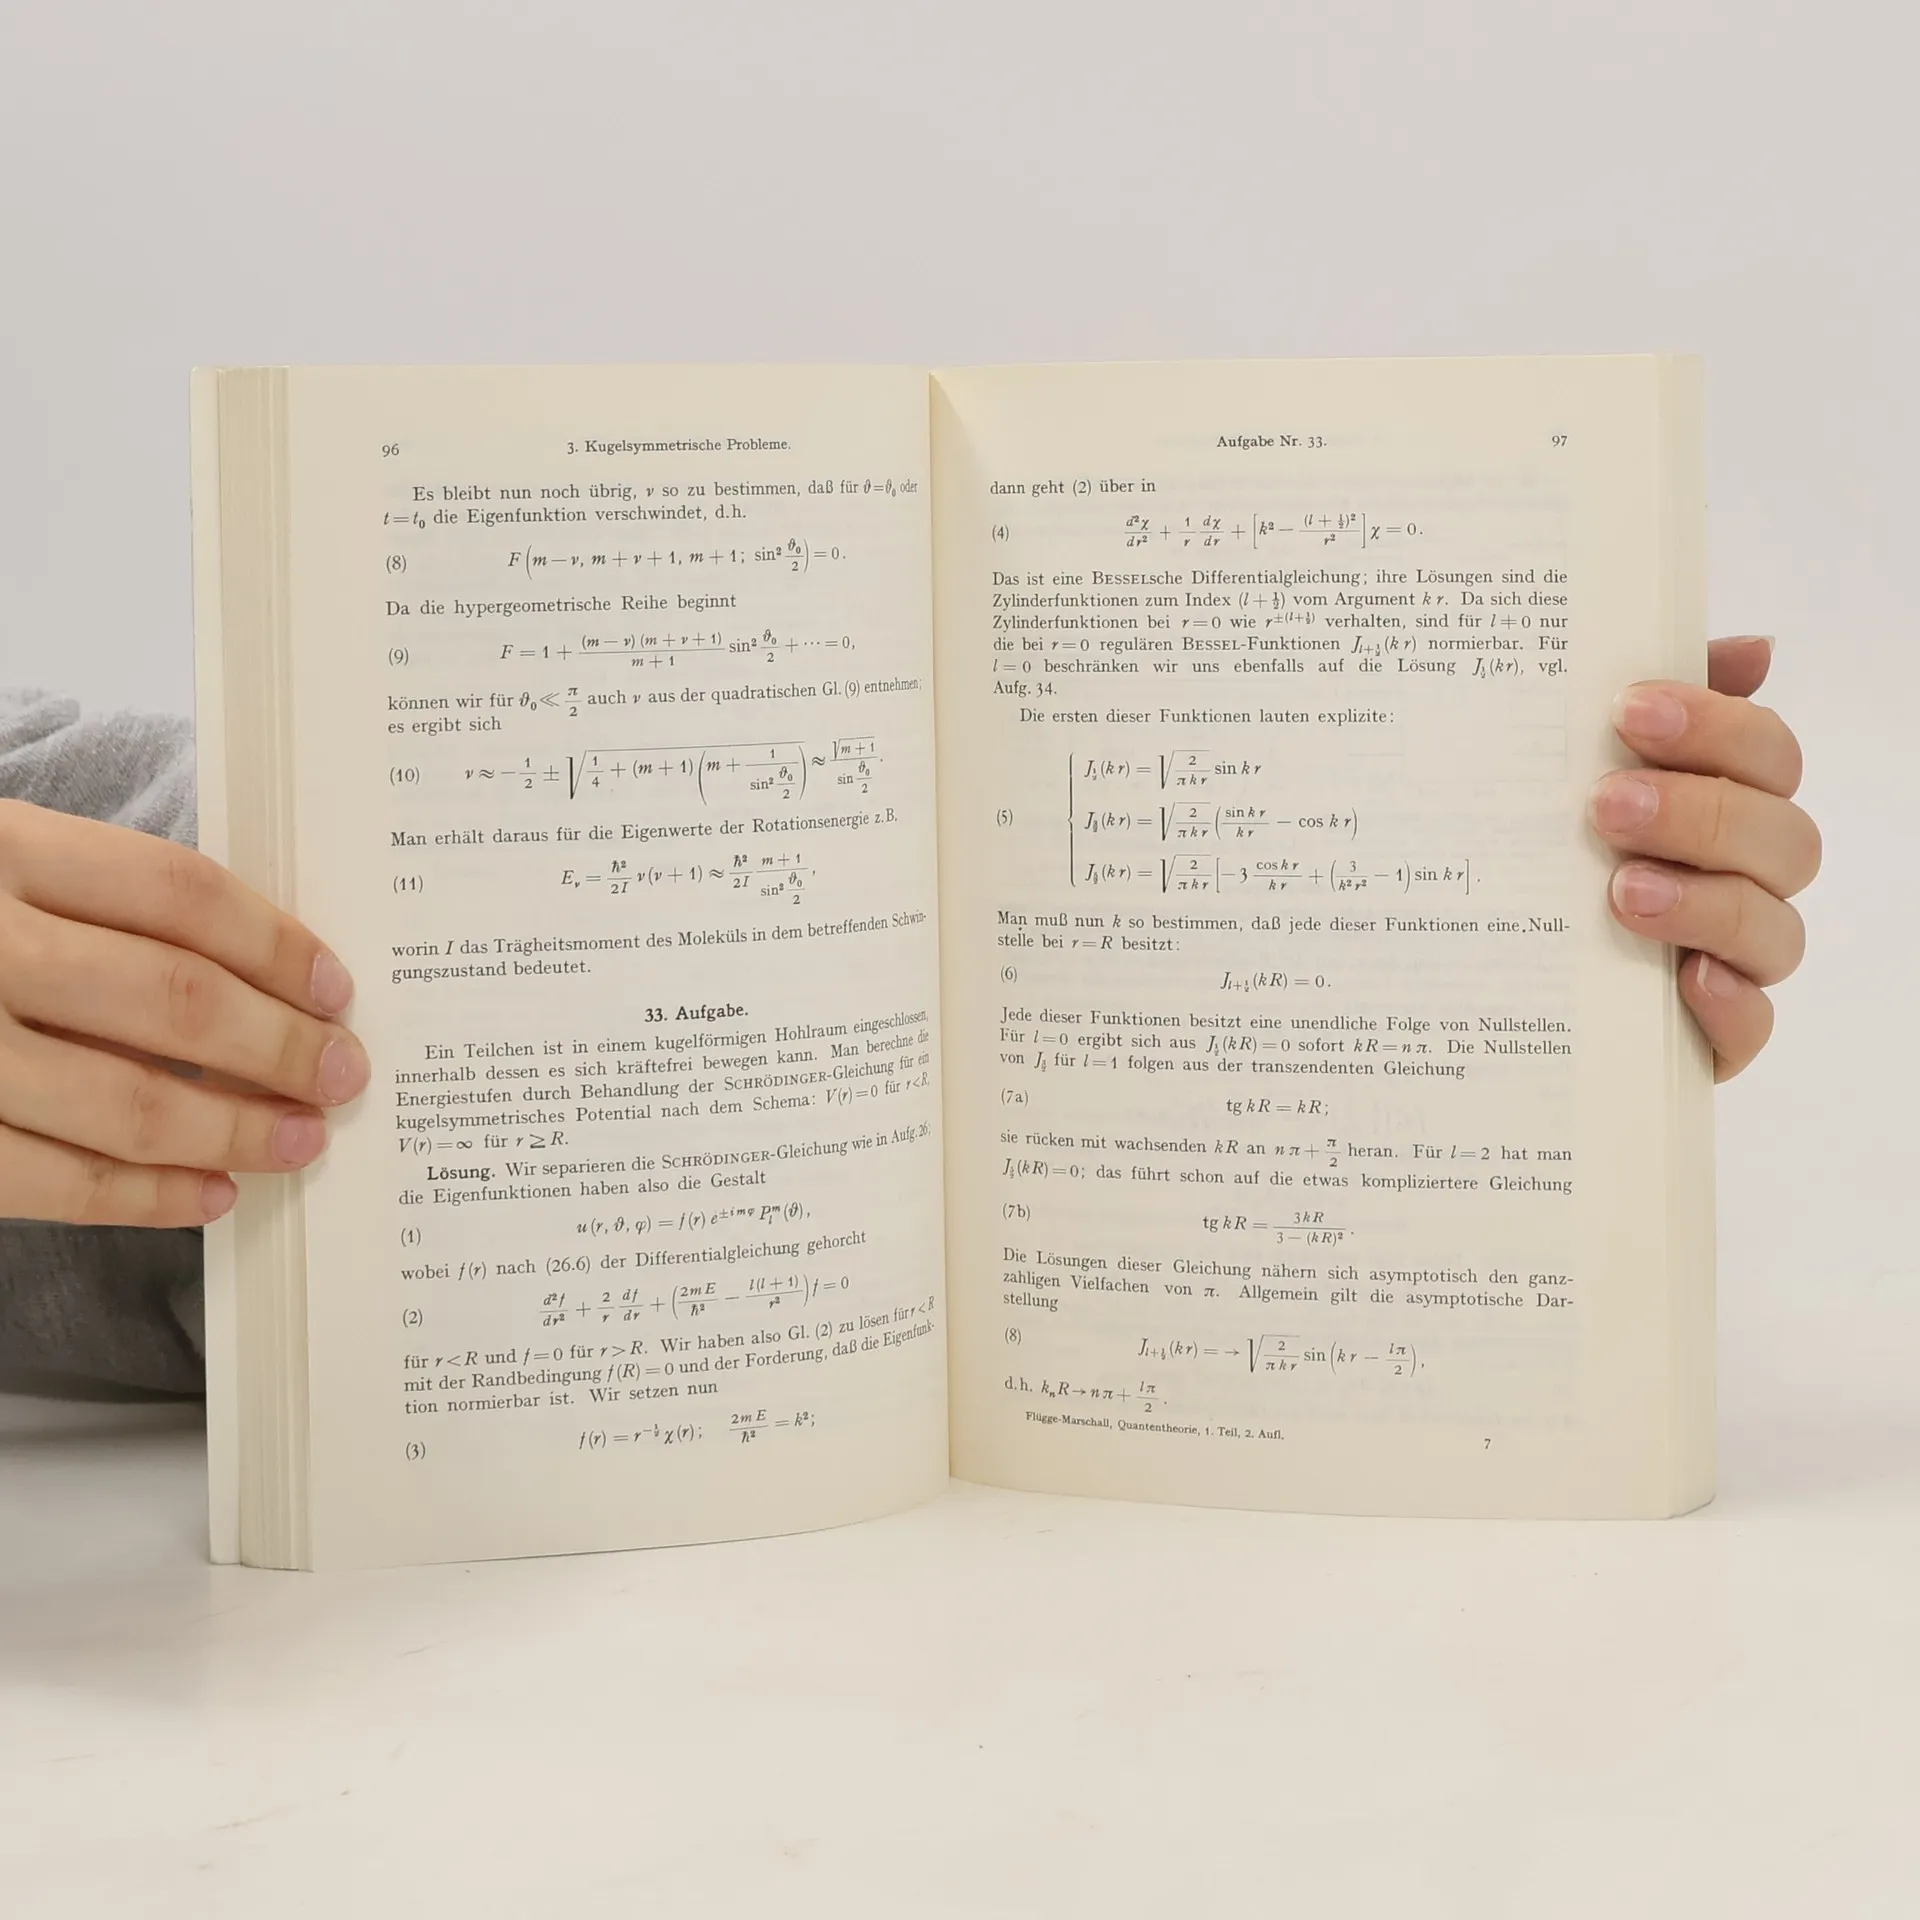 96 3. Kugelsymmetrische Probleme.
Es bleibt nun noch übrig, ν so zu bestimmen, daß für ϑ=ϑ₀ oder
t=t₀ die Eigenfunktion verschwindet, d.h.
(8) F(m−ν, m+ν+1, m+1; sin² ϑ₀/2)=0.
Da die hypergeometrische Reihe beginnt
(9) F=1+ (m−ν)(m+ν+1)/(m+1) sin² ϑ₀/2 + ⋯=0,
können wir für ϑ₀≪ π/2 auch ν aus der quadratischen Gl. (9) entnehmen;
es ergibt sich
(10) ν≈−1/2 ± √(1/4+(m+1)(m+1/(sin² ϑ₀/2))) ≈ √(m+1)/(sin ϑ₀/2).
Man erhält daraus für die Eigenwerte der Rotationsenergie z.B.
(11) E_ν = ℏ²/2I ν(ν+1) ≈ ℏ²/2I (m+1)/(sin² ϑ₀/2),
worin I das Trägheitsmoment des Moleküls in dem betreffenden Schwin-
gungszustand bedeutet.
33. Aufgabe.
Ein Teilchen ist in einem kugelförmigen Hohlraum eingeschlossen,
innerhalb dessen es sich kräftefrei bewegen kann. Man berechne die
Energiestufen durch Behandlung der SCHRÖDINGER-Gleichung für ein
kugelsymmetrisches Potential nach dem Schema: V(r)=0 für r<R,
V(r)=∞ für r≥R.
Lösung. Wir separieren die SCHRÖDINGER-Gleichung wie in Aufg. 26;
die Eigenfunktionen haben also die Gestalt
(1) u(r, ϑ, φ)=f(r) e^{±imφ} P_l^m(ϑ),
wobei f(r) nach (26.6) der Differentialgleichung gehorcht
(2) d²f/dr² + 2/r df/dr + (2mE/ℏ² − l(l+1)/r²) f=0
für r<R und f=0 für r>R. Wir haben also Gl. (2) zu lösen für r<R
mit der Randbedingung f(R)=0 und der Forderung, daß die Eigenfunk-
tion normierbar ist. Wir setzen nun
(3) f(r)=r^{−½} χ(r); 2mE/ℏ² = k²;
Aufgabe Nr. 33. 97
dann geht (2) über in
(4) d²χ/dr² + 1/r dχ/dr + [k² − (l+½)²/r²] χ=0.
Das ist eine BESSELsche Differentialgleichung; ihre Lösungen sind die
Zylinderfunktionen zum Index (l+½) vom Argument k r. Da sich diese
Zylinderfunktionen bei r=0 wie r^{±(l+½)} verhalten, sind für l≠0 nur
die bei r=0 regulären BESSEL-Funktionen J_{l+½}(k r) normierbar. Für
l=0 beschränken wir uns ebenfalls auf die Lösung J_{½}(kr), vgl.
Aufg. 34.
Die ersten dieser Funktionen lauten explizite:
J_{½}(kr) = √(2/πkr) sin k r
(5) J_{3/2}(kr) = √(2/πkr) (sin k r/k r − cos k r)
J_{5/2}(kr) = √(2/πkr) [−3 cos k r/k r + (3/k²r² − 1) sin k r].
Man muß nun k so bestimmen, daß jede dieser Funktionen eine Null-
stelle bei r=R besitzt:
(6) J_{l+½}(kR)=0.
Jede dieser Funktionen besitzt eine unendliche Folge von Nullstellen.
Für l=0 ergibt sich aus J_{½}(kR)=0 sofort kR=nπ. Die Nullstellen
von J_{3/2} für l=1 folgen aus der transzendenten Gleichung
(7a) tg kR=kR;
sie rücken mit wachsenden kR an nπ+ π/2 heran. Für l=2 hat man
J_{5/2}(kR)=0; das führt schon auf die etwas kompliziertere Gleichung
(7b) tg kR = 3kR/(3−(kR)²).
Die Lösungen dieser Gleichung nähern sich asymptotisch den ganz-
zahligen Vielfachen von π. Allgemein gilt die asymptotische Dar-
stellung
(8) J_{l+½}(kr) = → √(2/πkr) sin(k r − lπ/2),
d.h. k_n R→nπ+ lπ/2.
Flügge-Marschall, Quantentheorie, 1. Teil, 2. Aufl. 7